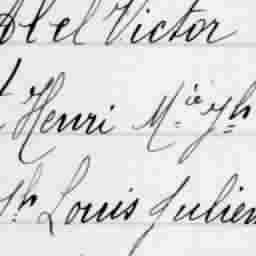 Abel Victor
Henri M.ie Jh
Jh Louis Julien